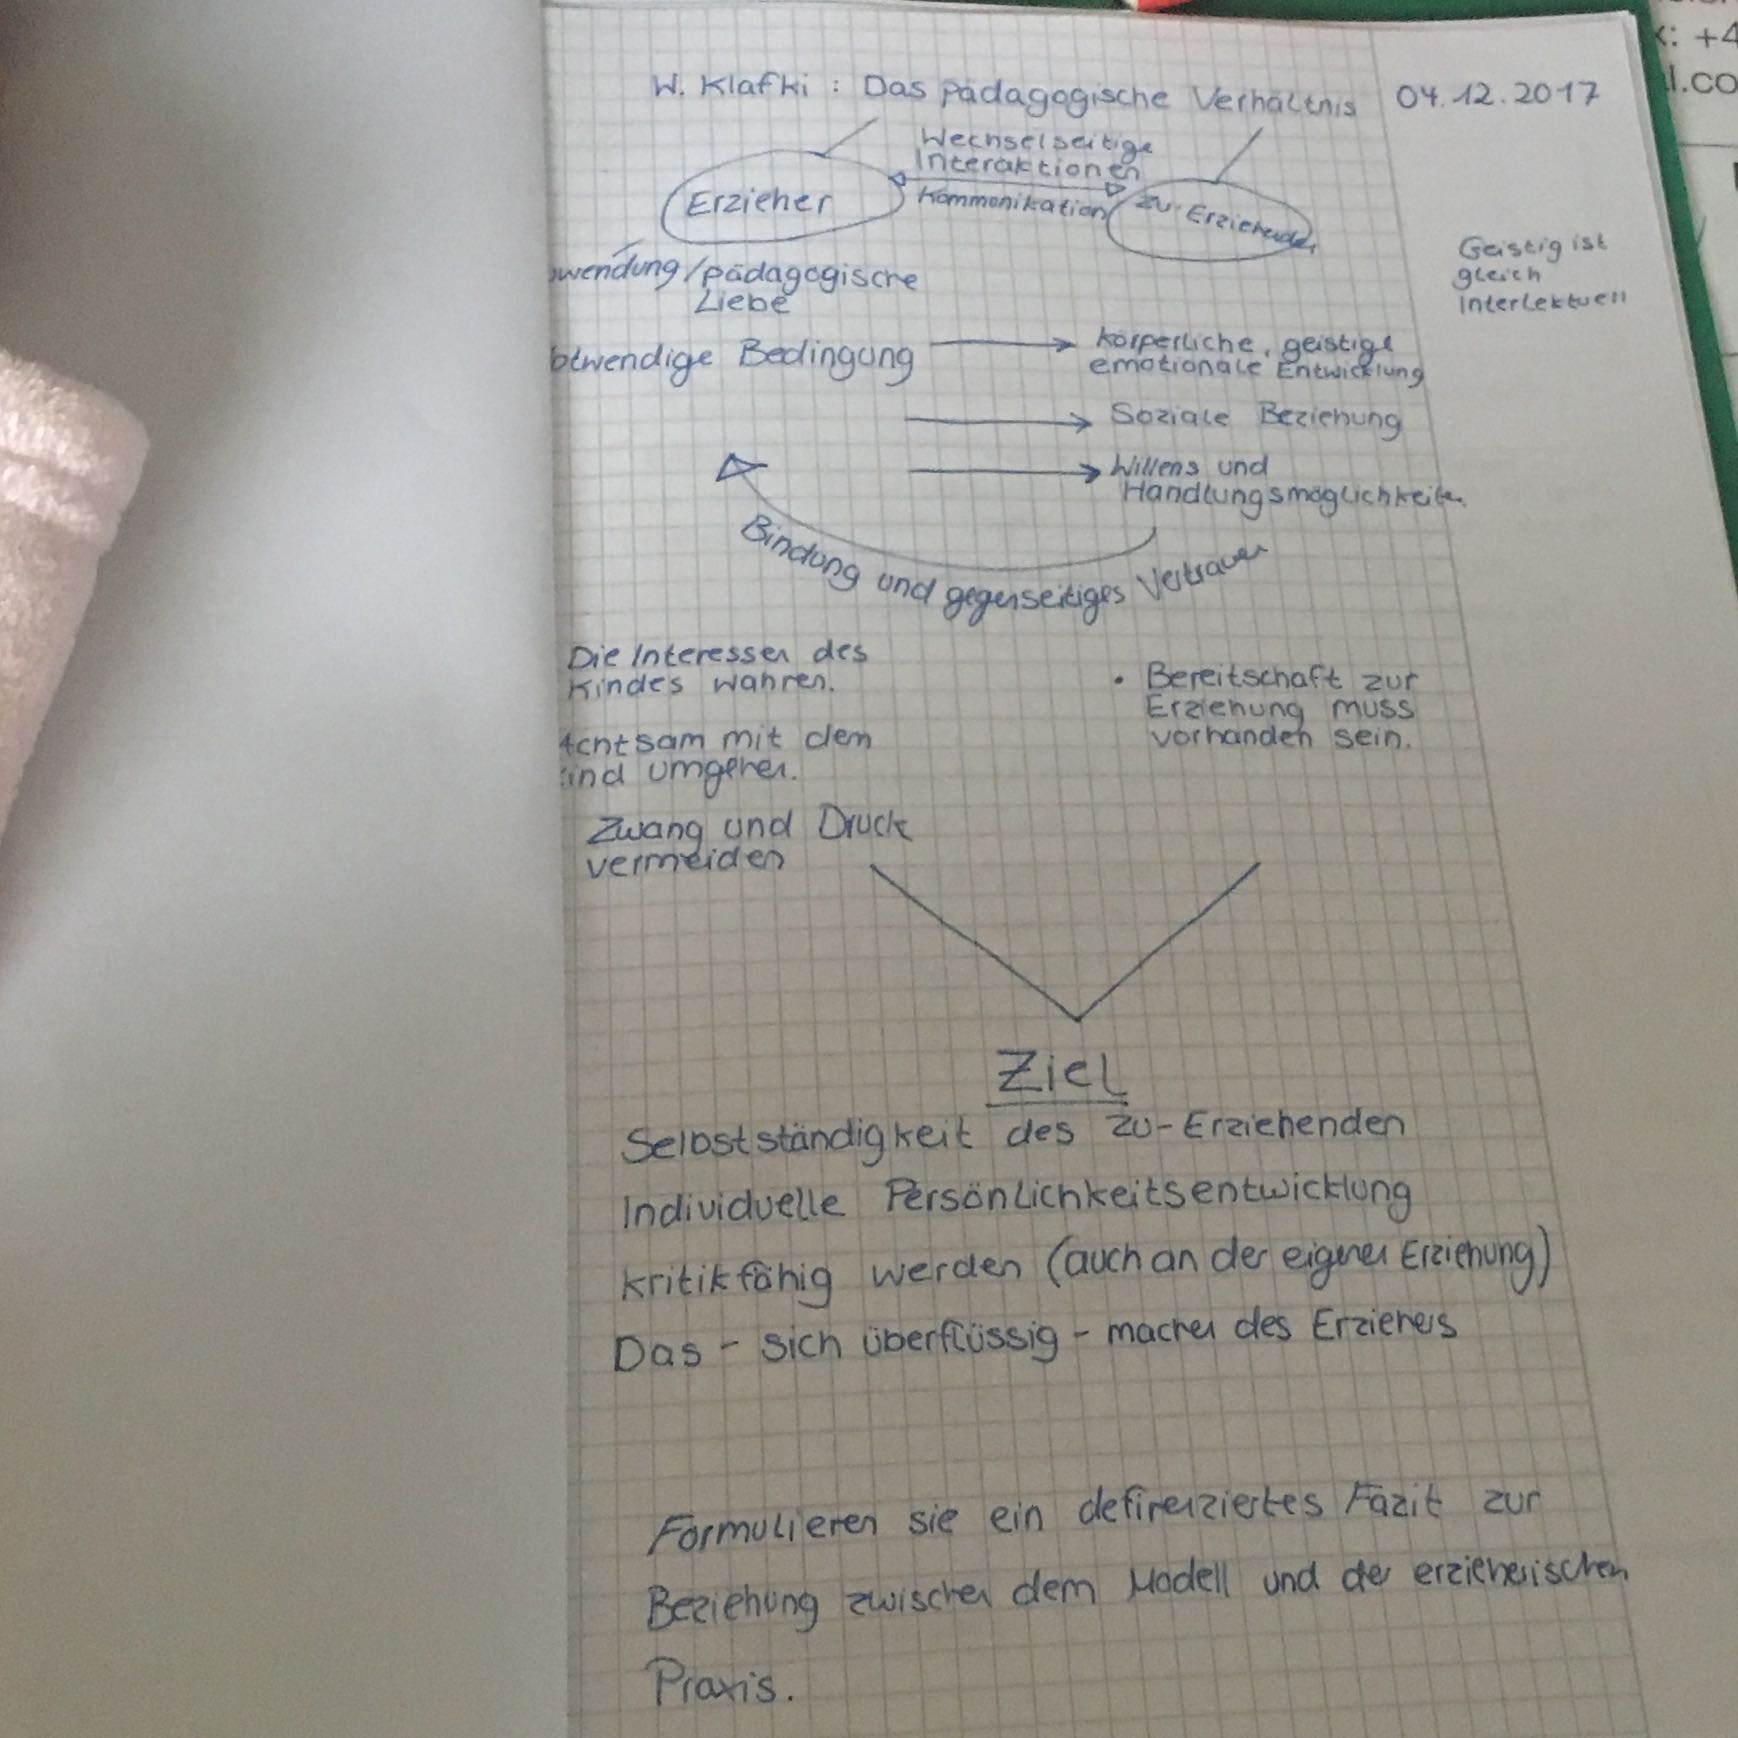 W. Klafki : Das pädagogische Verhältnis 04.12.2017
Wechselseitige
Interaktionen
Erzieher
Kommonikation
Zu-Erziehender
wendung/pädagogische
Liebe
Geistig ist
gleich
Interlektuell
otwendige Bedingung
körperliche, geistige
emotionale Entwicklung
Soziale Beziehung
Willens und
Handlungsmöglichkeiten
Bindung und gegenseitiges Vertrauen
Die Interessen des
Kindes wahren.
Achtsam mit dem
ind umgehen.
Zwang und Druck
vermeiden
• Bereitschaft zur
Erziehung muss
vorhanden sein.
Ziel
Selbstständigkeit des zu-Erziehenden
Individuelle Persönlichkeitsentwicklung
kritikfähig werden (auch an der eigenen Erziehung)
Das - sich überflüssig - machen des Erziehers
Formulieren sie ein defirenziertes Fazit zur
Beziehung zwischen dem Modell und der erzieherischen
Praxis.
: +4
l.co